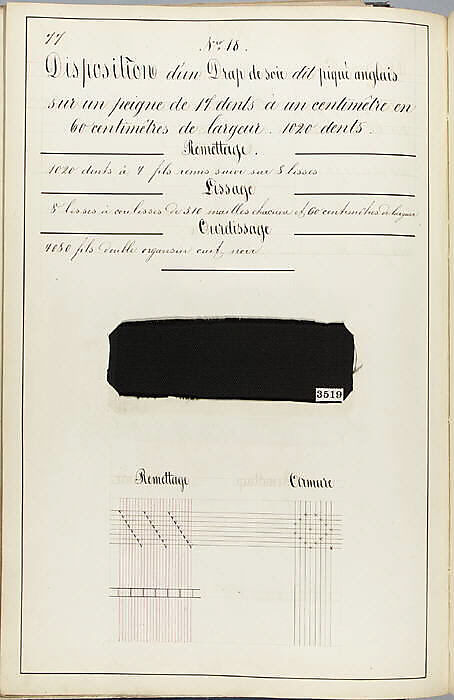 77
Nº 18.
Disposition d'un Drap de soie dit piqué anglais
sur un peigne de 17 dents à un centimètre en
60 centimètres de largeur. 1020 dents.
Remettage.
1020 dents à 4 fils remis suivi sur 8 lisses
Lissage
8 lisses à coulisses de 510 mailles chacune et 60 centimètres de largeur
Ourdissage
4080 fils double organsin cuit, noir
3519
Remettage
Armure